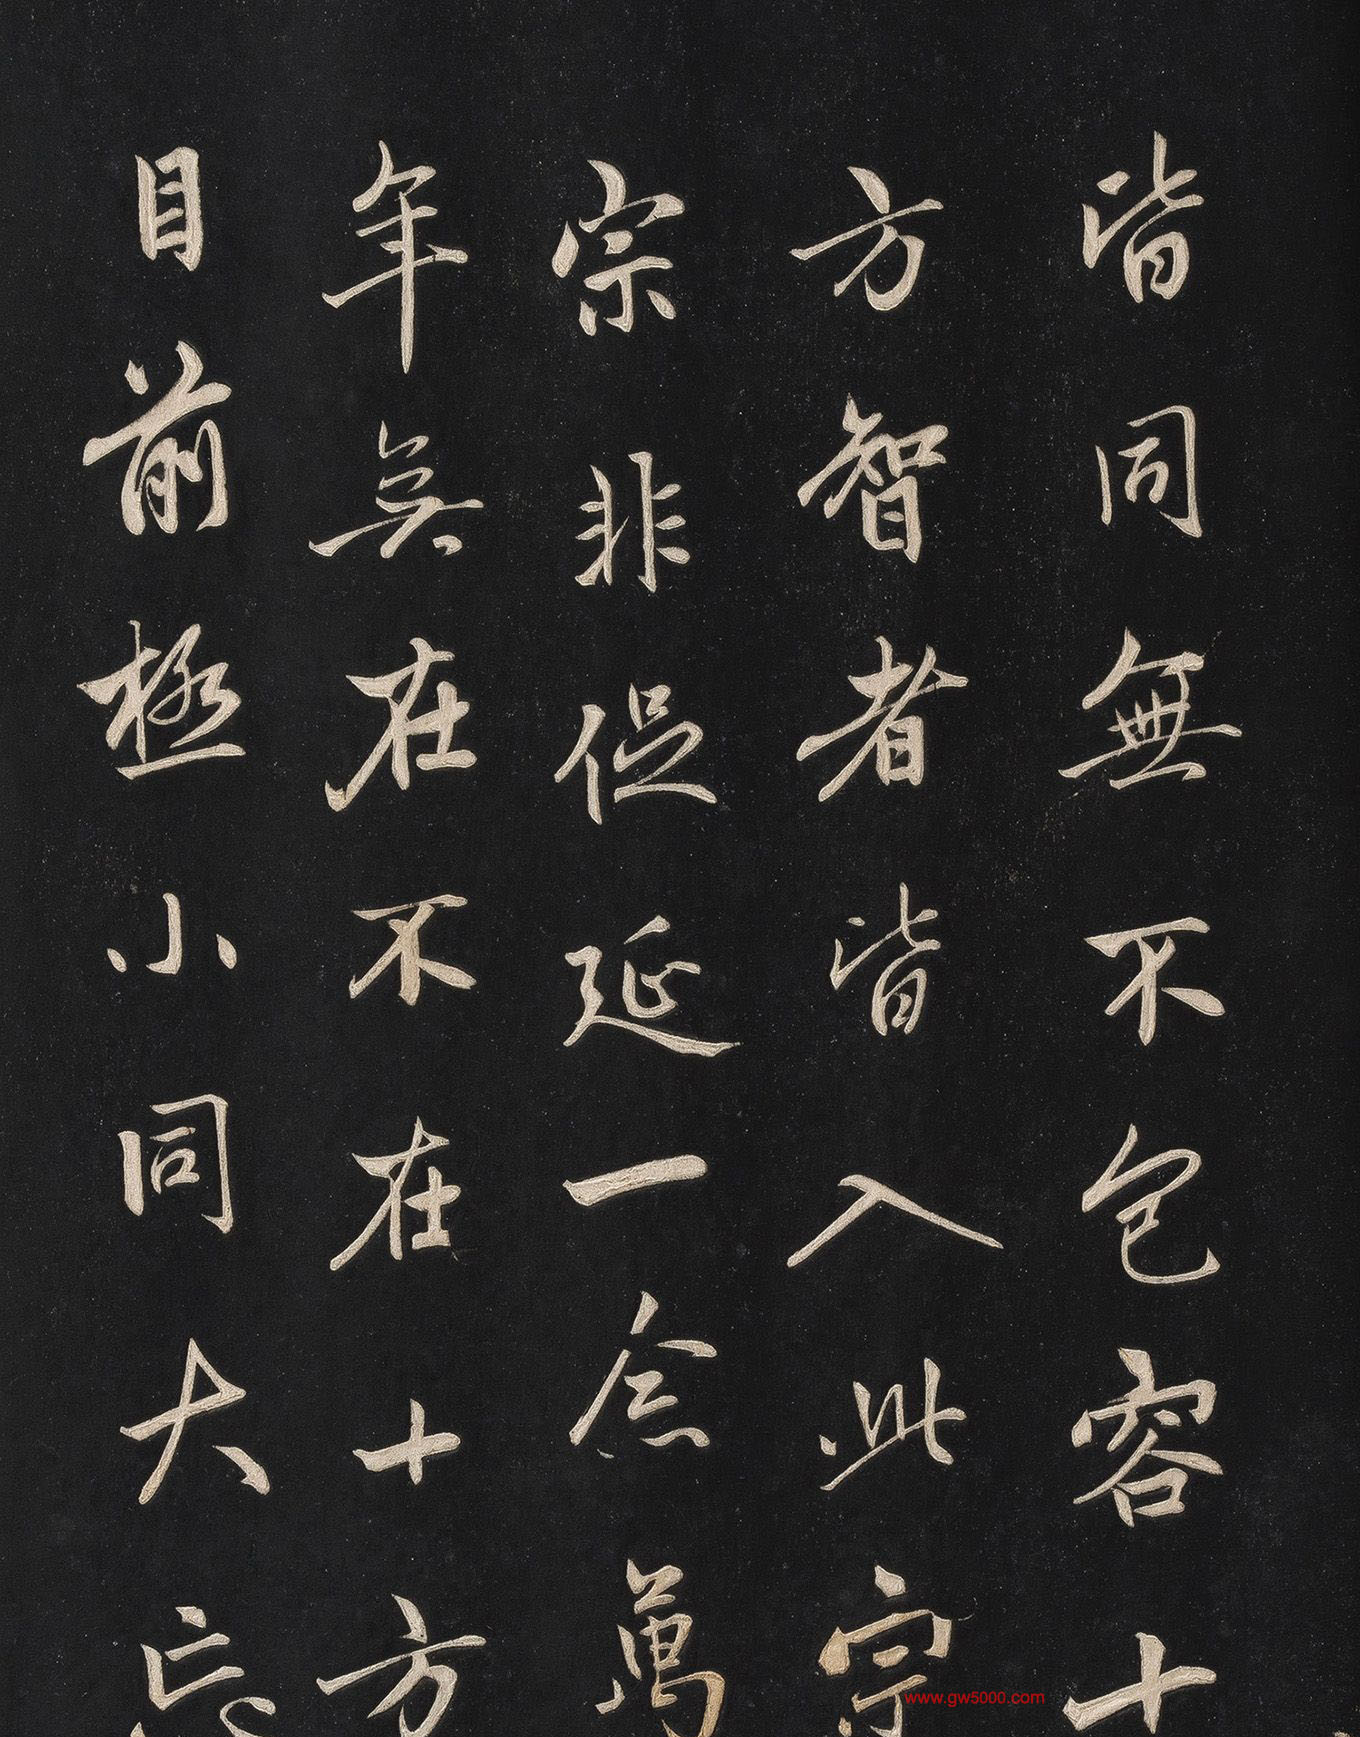 皆同無不包容十
方智者皆入此宗
宗非促延一念萬
年無在不在十方
目前極小同大忘
www.gw5000.com